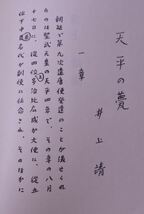 天平の甍
井上靖
一章
朝廷で第九次遣唐使発遣のことが議せられ
たのは聖武天皇の天平四年で、その年の八月
十七日に、従四位下多治比広成が大使に、従五
位下中臣名代が副使に任命され、そのほか大